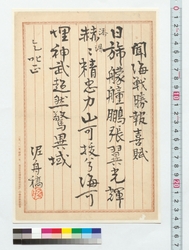 聞海戦勝報喜賦
日旆艨艟鵬張翼光輝
赫々精忠力山可抜兮海可
埋神武超然驚異域
乞叱正
泥舟稿